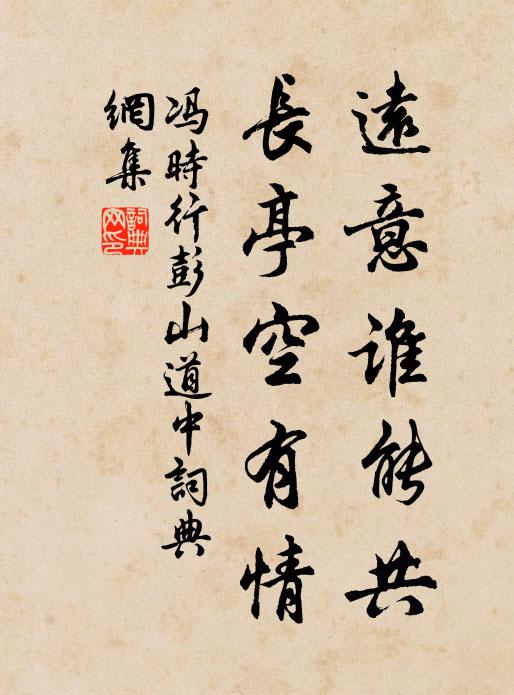 遠意誰能共
長亭空有情
冯時行彭山道中詞典
網集
詞典
网印